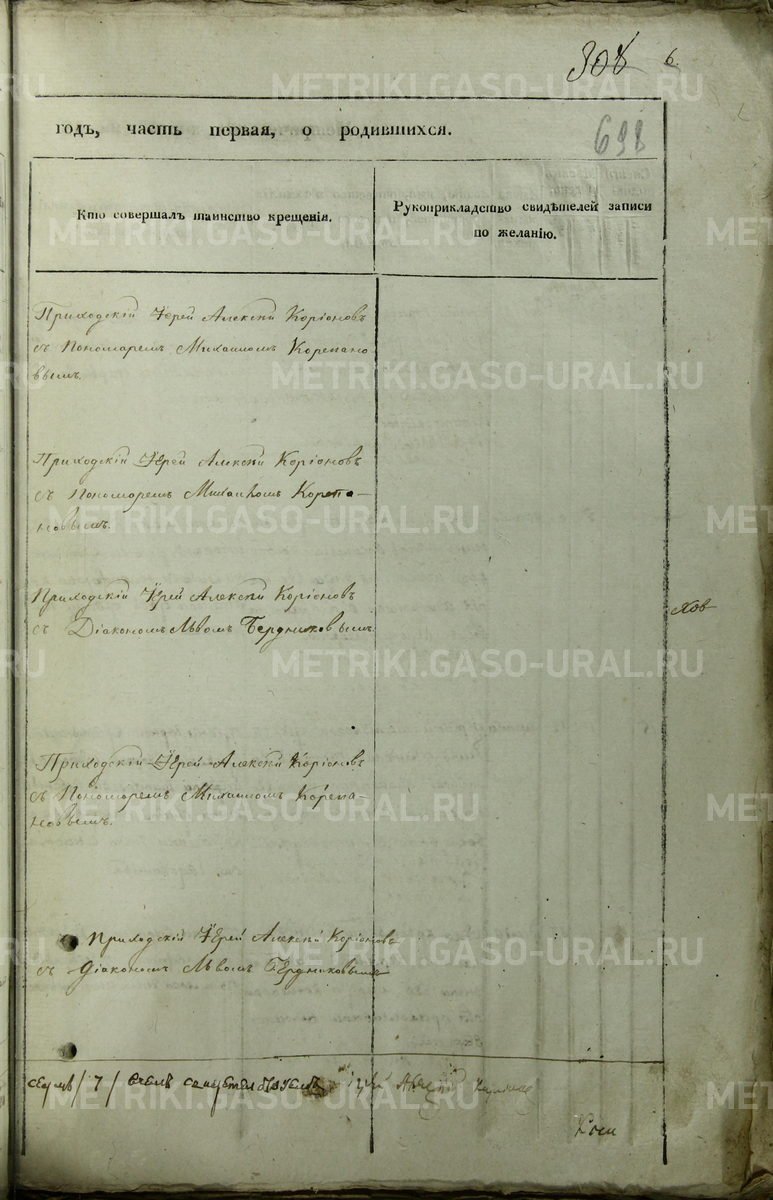 308 6.
698
годъ, часть первая, о родившихся.
Кто совершалъ таинство крещенія.
Рукоприкладство свидѣтелей записи
по желанію.
Приходскій Іерей Алексѣй Коріоновъ
съ Пономаремъ Михаиломъ Корепано
вымъ.
Приходскій Іерей Алексѣй Коріоновъ
съ Пономаремъ Михаиломъ Корепа-
новымъ.
Приходскій Іерей Алексѣй Коріоновъ
съ Діакономъ Львомъ Бердниковымъ.
Приходскій Іерей Алексѣй Коріоновъ
съ Пономаремъ Михаиломъ Корепа-
новымъ.
Приходскій Іерей Алексѣй Коріоновъ
съ Діакономъ Львомъ Бердниковымъ
/ 7 /
METRIKI.GASO-URAL.RU